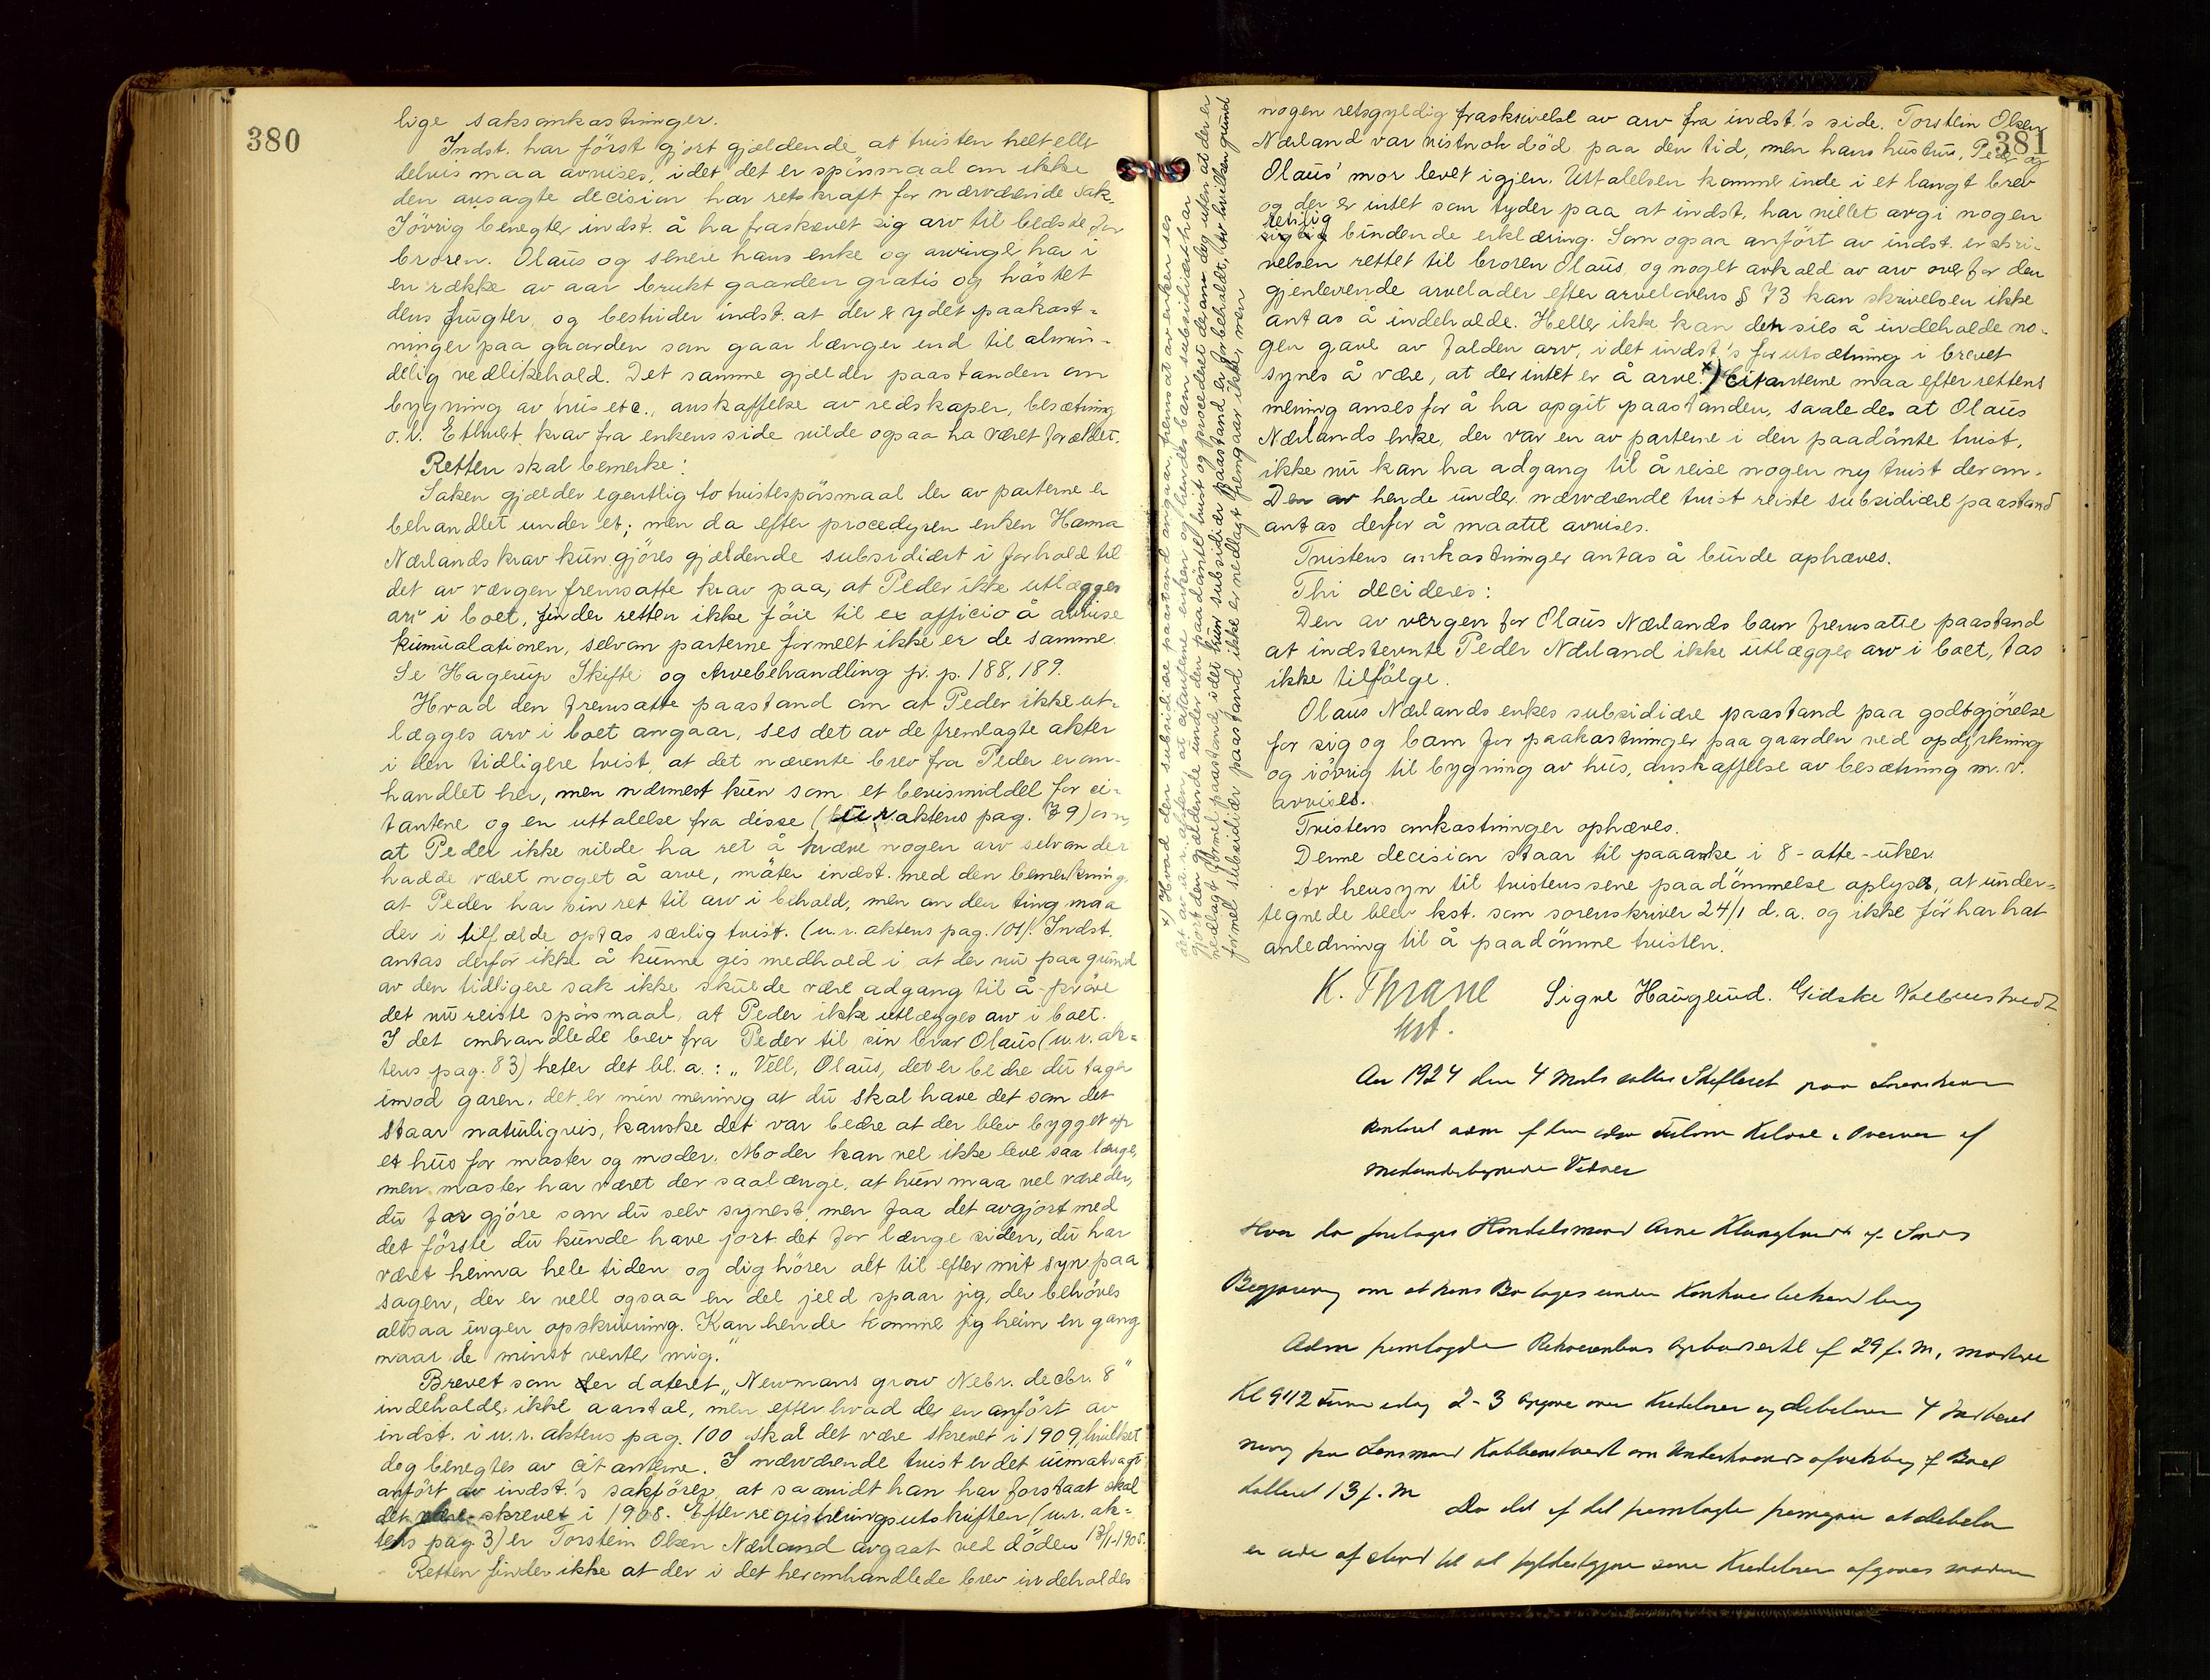 380
lige saksomkostninger.
Indst. har först gjort gjældende at tvisten helt eller
delvis maa avvises, idet det er spörsmaal om ikke
den avsagte decision har retskraft for nærværende sak.
Iövrig benegter indst. å ha fraskrevet sig arv til bedste for
broren. Olaus og senere hans enke og arvinger har i
en række av aar brukt gaarden gratis og höstet
dens frugter, og bestrider indst. at der er ydet paakost-
ninger paa gaarden som gaar længer end til almin-
delig vedlikehold. Det samme gjælder paastanden om
bygning av hus etc., anskaffelse av redskaper, besætning
o.l. Ethvert krav fra enkens side vilde ogsaa ha været forældet.
Retten skal bemerke:
Saken gjælder egentlig to tvistespörsmaal der av parterne er
behandlet under et; men da efter proceduren enken Hanna
Nærlands krav kun gjöres gjældende subsidiært i forhold til
det av værgen fremsatte krav paa, at Peder ikke utlægges
arv i boet, finder retten ikke föie til ex officio å avvise
kumulationen, selvom parterne formelt ikke er de samme.
Se Hagerup Skifte og Arvebehandling fr. p. 188, 189.
Hvad den fremsatte paastand om at Peder ikke ut-
lægges arv i boet angaar, ses det av de fremlagte akter
i den tidligere tvist, at det nævnte brev fra Peder er om-
handlet her, men nærmest kun som et bevismiddel for ci-
tantene og en uttalelse fra disse (u.r. aktens pag. 79) om,
at Peder ikke vilde ha ret å kræve nogen arv selvom der
hadde været noget å arve, möter indst. med den bemerkning
at Peder har sin ret til arv i behold, men om den ting maa
der i tilfælde optas særlig tvist. (u.r. aktens pag. 101). Indst.
antas derfor ikke å kunne gis medhold i at der nu paa grund
av den tidligere sak ikke skulde være adgang til å pröve
det nu reiste spörsmaal, at Peder ikke utlægges arv i boet.
I det omhandlede brev fra Peder til sin bror Olaus (u.r. ak-
tens pag. 83) heter det bl. a.: „Vell, Olaus, det er bedre du tager
imod garen, det er min mening at du skal have det som det
staar naturligvis, kanske det var bedre at der blev bygget op
et hus for moster og moder. Moder kan vel ikke leve saa længe,
men moster har været der saalænge, at hun maa vel være der,
du far gjöre som du selv synest, men faa det avgjort med
det förste du kunde have jort det for længe siden, du har
været heima hele tiden og dig hörer alt til efter mit syn paa
sagen, der er vell ogsaa en del jeld spaar jig, der behöves
altsaa ingen opskrivning. Kan hende kommer jig heim en gang
naar de minst venter mig."
Brevet som er dateret „Newmans grow Nebr. decbr. 8"
indeholder ikke aarstal, men efter hvad der er anfört av
indst. i u.r. aktens pag. 100 skal det være skrevet i 1909, hvilket
dog benegtes av citanterne. I nærværende tvist er det uimotsagt
anfört av indst.'s sakförer, at saavidt han har forstaat skal
det være skrevet i 1908. Efter registreringsutskriften (u.r. ak-
tens pag. 3) er Torstein Olsen Nærland avgaat ved döden 13/1-1905.
Retten finder ikke at der i det her omhandlede brev indeholdes
381
nogen retsgyldig fraskrivelse av arv fra indst.'s side. Torstein Olsen
Nærland var vistnok död paa den tid, men hans hustru, Peder og
Olaus' mor levet igjen. Uttalelsen kommer inde i et langt brev
og der er intet som tyder paa at indst. har villet avgi nogen
retslig bindende erklæring. Som ogsaa anfört av indst. er skri-
velsen rettet til broren Olaus, og noget avkald av arv overfor den
gjenlevende arvelader efter arvelovens § 73 kan skrivelsen ikke
antas å indeholde. Heller ikke kan den sies å indeholde no-
gen gave av falden arv, idet indst.'s forutsætning i brevet
synes å være, at der intet er å arve. x) Citanterne maa efter rettens
mening anses for å ha opgit paastanden, saaledes at Olaus
Nærlands enke, der var en av parterne i den paadömte tvist,
ikke nu kan ha adgang til å reise nogen ny tvist derom.
Den av hende under nærværende tvist reiste subsidiære paastand
antas derfor å maatte avvises.
Tvistens omkostninger antas å burde ophæves.
Thi decideres:
Den av værgen for Olaus Nærlands barn fremsatte paastand
at indstevnte Peder Nærland ikke utlægges arv i boet, tas
ikke tilfölge.
Olaus Nærlands enkes subsidiære paastand paa godtgjörelse
for sig og barn for paakostninger paa gaarden ved opdyrkning
og iövrig til bygning av hus, anskaffelse av besætning m.v.
avvises.
Tvistens omkostninger ophæves.
Denne decision staar til paaanke i 8-otte-uker.
Av hensyn til tvistens sene paadömmelse oplyses, at under-
tegnede blev kst. som sorenskriver 24/1 d.a. og ikke för har hat
anledning til å paadömme tvisten.
K. Thrane Signe Haugland. Gidske Kolbenstvedt
kst.
x) Hvad den subsidiære paastand angaar, fremsat av enken ses
det av u.r. akten, at citantene enken og hendes barn subsidiært har
gjort den gjældende under den paadömte tvist og procederet derom dog uten at der er
nedlagt formel paastand, idet kun subsidiær paastand er forbeholdt, av hvilken grund
formel subsidiær paastand ikke er nedlagt fremgaar ikke, men
Aar 1924 den 4 Marts sattes Skifteret paa Sorenskriver
kontoret adm af
Hvor da foretoges Handelsmand Arne
Begjæring om at hans Bo tages under Konkursbehandling
Adm fremlagde Rekvirentens af 29 f. M,
Kl 9 1/2 2-3 Opgave over Kreditorer og Debitorer 4
ning fra Lensmand Kolbenstvedt om af Boet
dateret 13 f. M Da det af det fremlagte fremgaar at Debitor
er ude af stand til at fyldestgjøre sine Kreditorer afgaves saadan